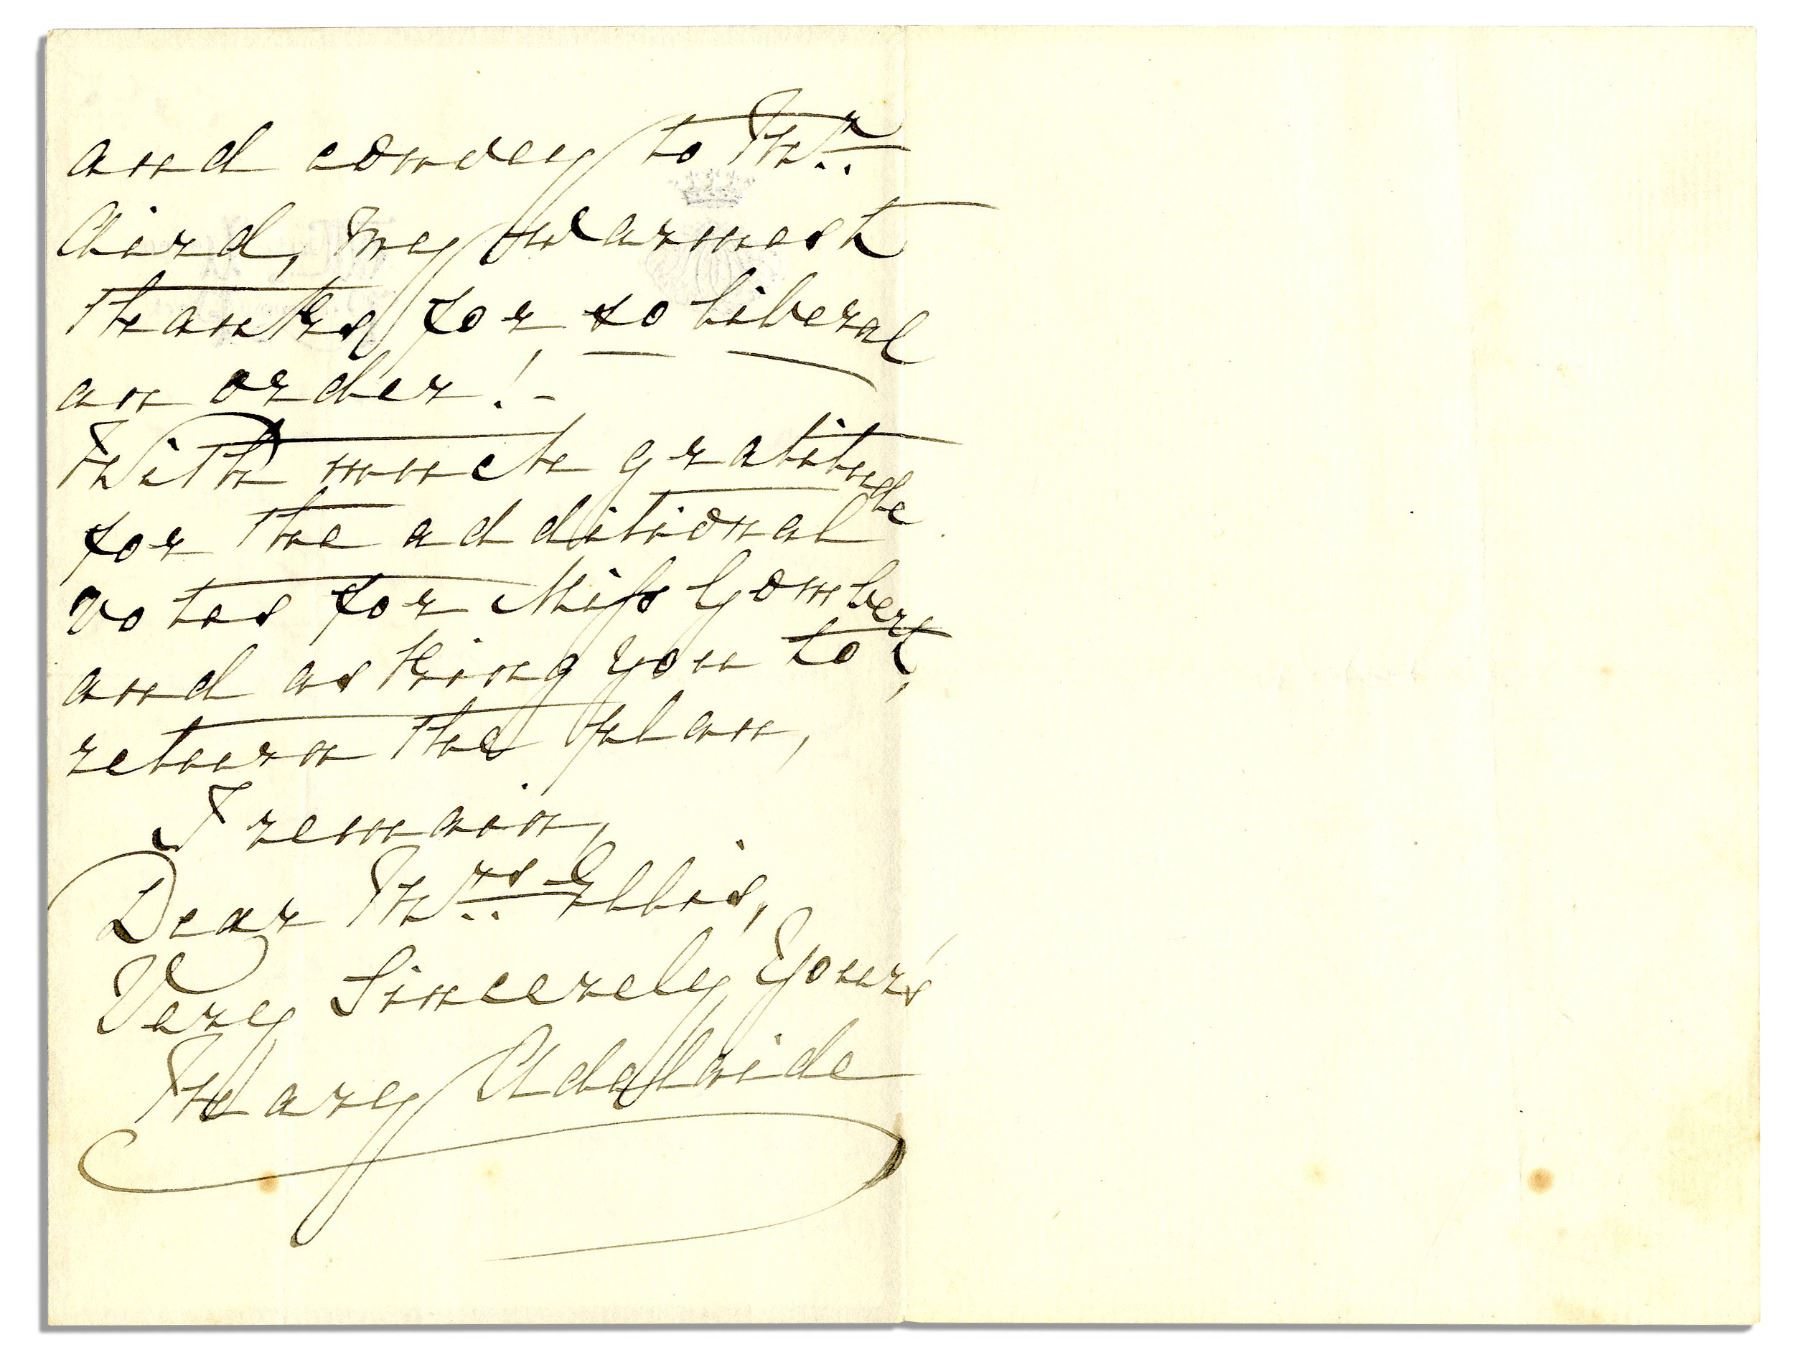 and convey to Mr.
Aird, my warmest
thanks for so liberal
an order! -
With much gratitude
for the additional
votes for Miss Gombert,
and asking you to
return the plan,
I remain,
Dear Mrs. Ellis,
Very Sincerely Your's
Mary Adelaide